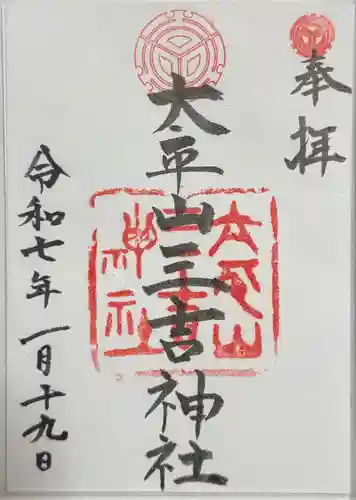 奉拝
太平山三吉神社
太平山
三吉
神社
令和七年一月十九日